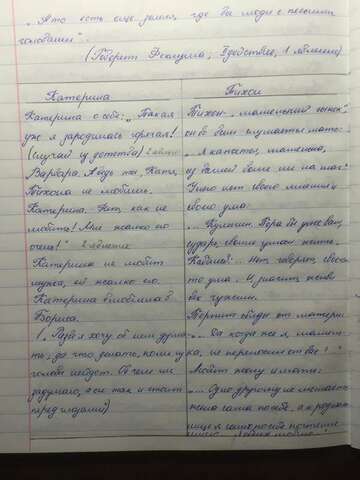 „А то есть еще земля, где все люди с песьими
головами"..
(Говорит Феклуша, 2 действие, 1 явление)
Катерина
Катерина о себе: „Такая
уж я зародилась горячая!
(случай из детства) 2 явление
Варвара. А ведь ты, Катя,
Тихона не любишь.
Катерина. Нет, как не
любить! Мне жалко его
очень!" 2 явление
Катерина не любит
мужа, ей жалко его.
Катерина влюблена в
Бориса.
(„Разве я хочу об нем дума-
ть, да что делать, коли из
головы нейдет. Об чем ни
задумаю, а он так и стоит
перед глазами")
Тихон
Тихон „маменькин сынок",
он во всем слушается мать:
„Я, кажется, маменька,
из вашей воли ни на шаг"
У него нет своего мнения,
своего ума:
„...Кулигин. Пора бы уж вам,
сударь, своим умом жить.
Кабанов: ... Нет, говорят, своего-
то ума. И, значит, живи
век чужим.
Терпит обиды от матери:
„... Да когда же я, маменька,
не переносил от вас!"
Любит жену и мать:
„... Одно другому не мешает-с:
жена сама по себе, а к родитель-
нице я само по себе почтение